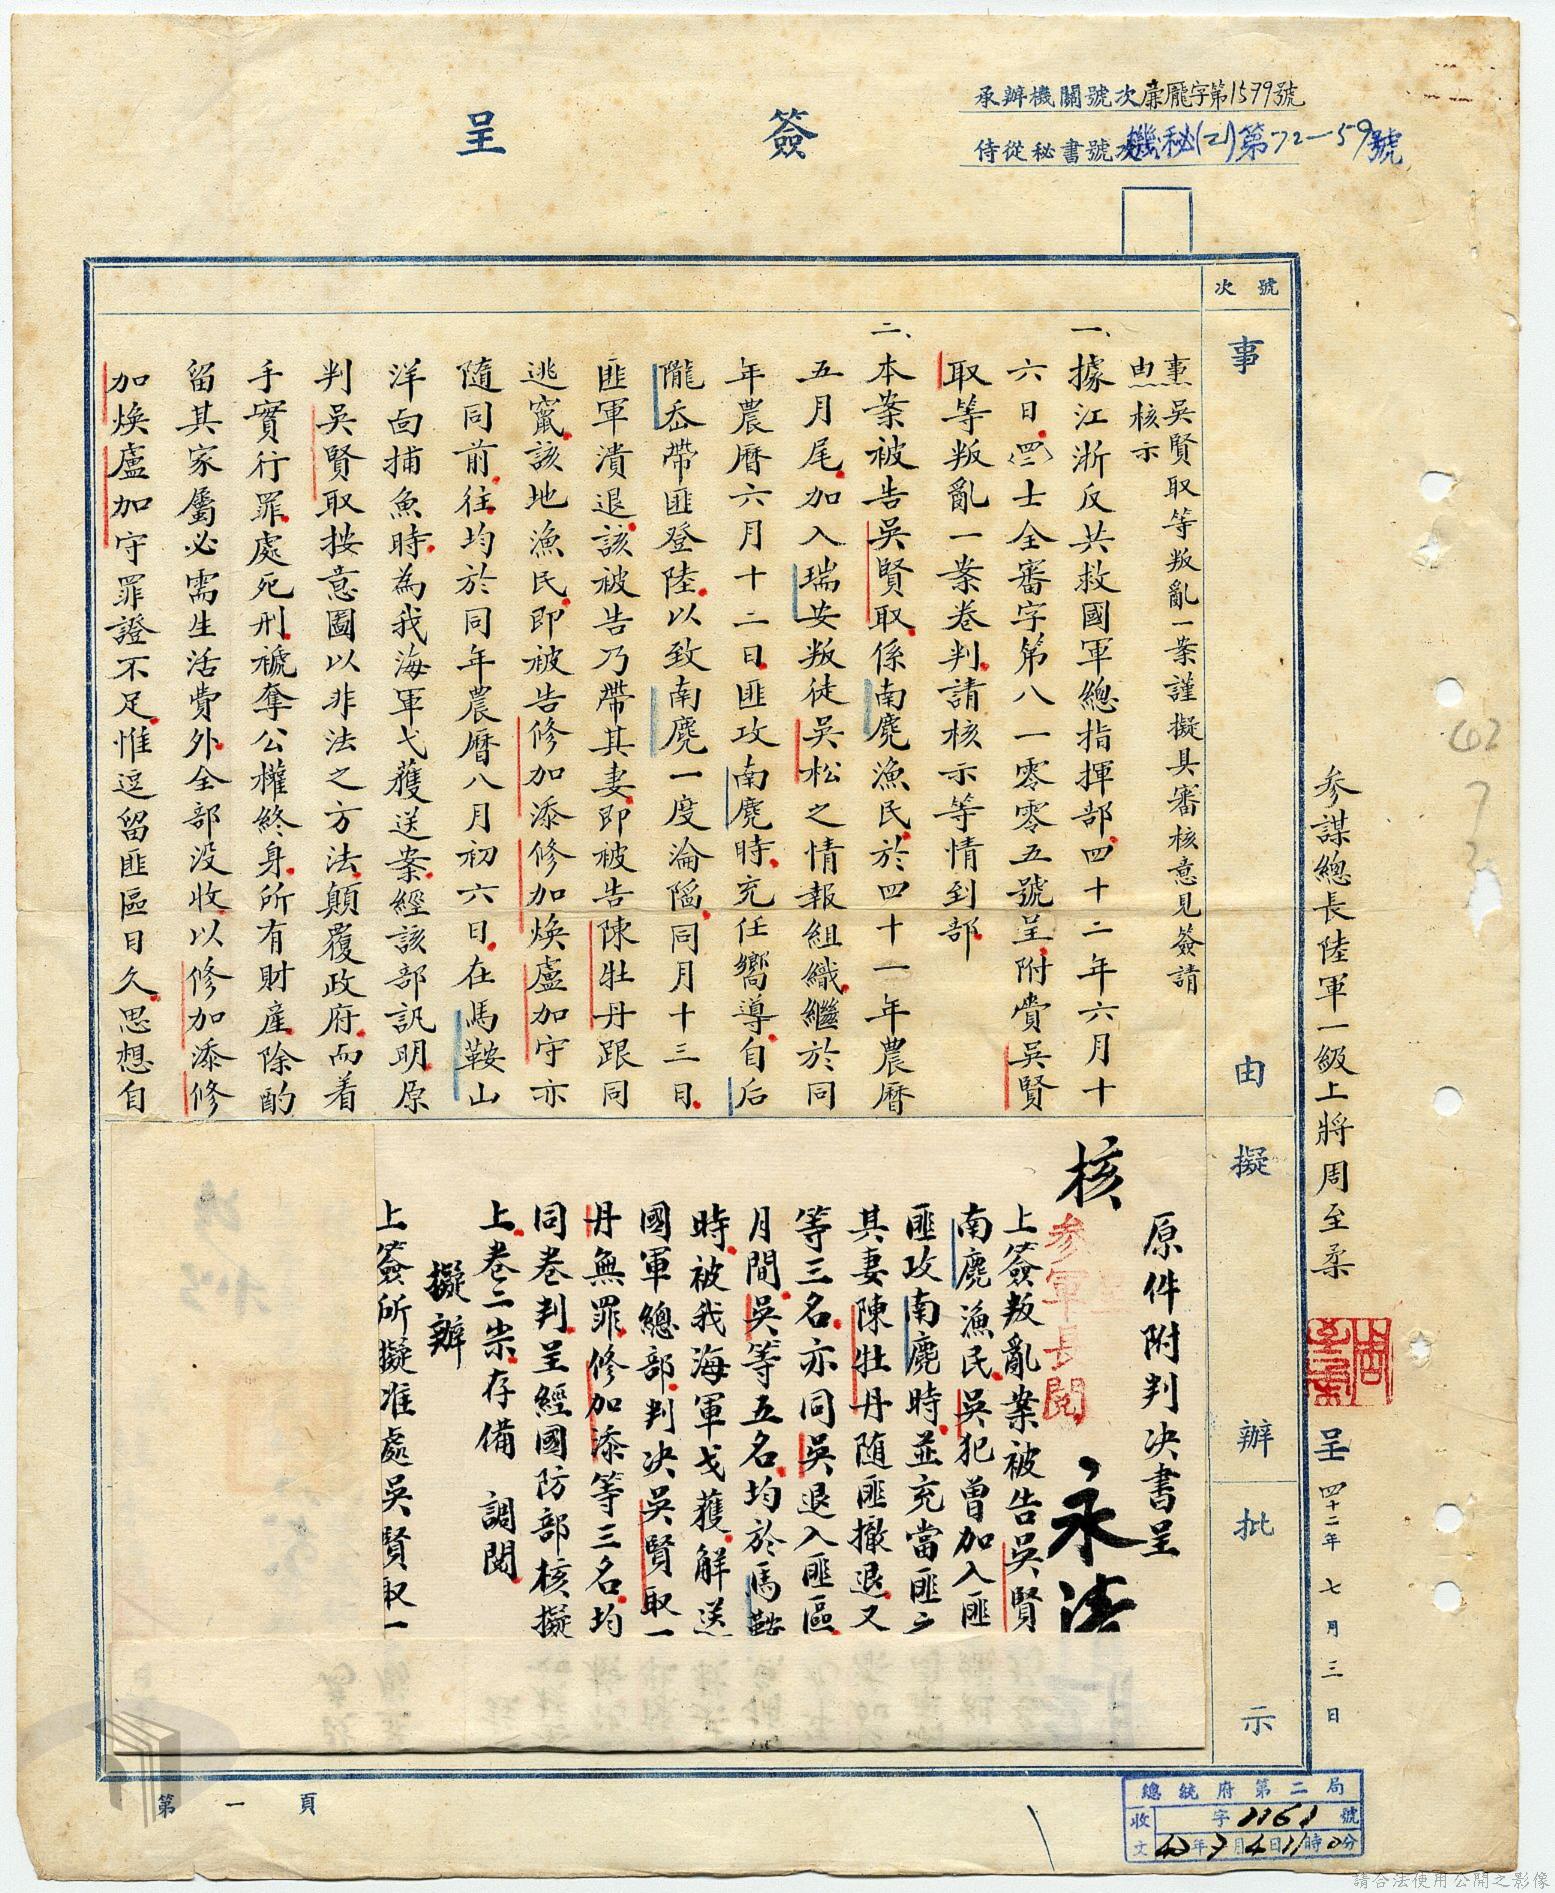 簽呈
承辦機關號次廉龐字第1579號
侍從秘書號次機秘(乙)第72-59號
號次
事由擬辦批示
事由：吳賢取等叛亂一案謹擬具審核意見簽請
核示
一、據江浙反共救國軍總指揮部四十二年六月十
六日(四二)士全審字第八一零零五號呈附賫吳賢
取等叛亂一案卷判請核示等情到部
二、本案被告吳賢取係南麂漁民於四十一年農曆
五月尾加入瑞安叛徒吳松之情報組織繼於同
年農曆六月十二日匪攻南麂時充任嚮導自后
隴岙帶匪登陸以致南麂一度淪陷同月十三日
匪軍潰退該被告乃帶其妻即被告陳牡丹跟同
逃竄該地漁民即被告修加添修加煥盧加守亦
隨同前往均於同年農曆八月初六日在馬鞍山
洋面捕魚時為我海軍弋獲送案經該部訊明原
判吳賢取按意圖以非法之方法顛覆政府而着
手實行罪處死刑褫奪公權終身所有財產除酌
留其家屬必需生活費外全部没收以修加添修
加煥盧加守罪證不足惟逗留匪區日久思想自
原件附判決書呈
核
參軍長閱
永清
上簽叛亂案被告吳賢
南麂漁民吳犯曾加入匪
匪攻南麂時並充當匪
其妻陳牡丹随匪撤退又
等三名亦同吳退入匪區
月間吳等五名均於馬鞍
時被我海軍弋獲解送
國軍總部判决吳賢取一
丹無罪修加添等三名均
同卷判呈經國防部核擬
上卷二宗存備　調閱
擬辦
上簽所擬准處吳賢取一
參謀總長陸軍一級上將周至柔
周至柔
呈
四十二年七月三日
第一頁
總統府第二局
收文
字1161號
42年7月4日11時0分
請合法使用公開之影像